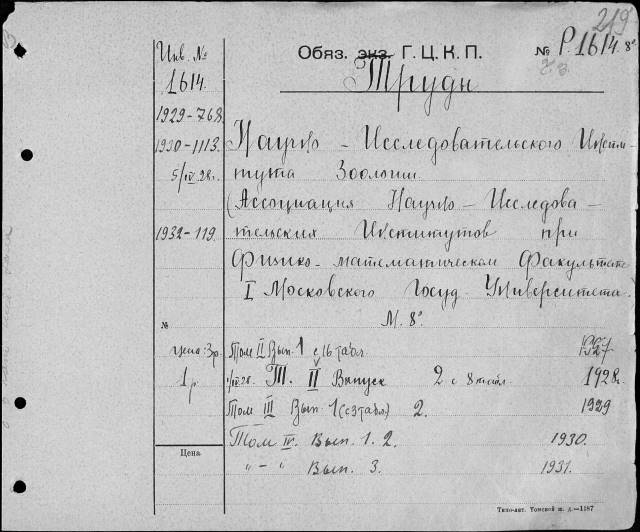 219
Инв. №
1614.
Обяз. экз. Г. Ц. К. П.
№ Р. 1614. 8°
Труды
1929-768
1930-1113.
5/IV 28 г.
1932-119.
Научно - Исследовательского Инсти-
тута Зоологии
(Ассоциация Научно - Исследова-
тельских Институтов при
Физико-математическом Факультете
I Московского Госуд. Университета.
М. 8°
№
цена: 3р. Том II Вып. 1 с 16 табл. 1927
1 р. Т. II Выпуск 2 с 8 табл. 1928 г.
Том III Вып 1 (с 3 табл) 2. 1929
Том IV. Вып. 1. 2. 1930.
" - " Вып. 3. 1931.
Цена
Типо-лит. Томской ж. д.—1187